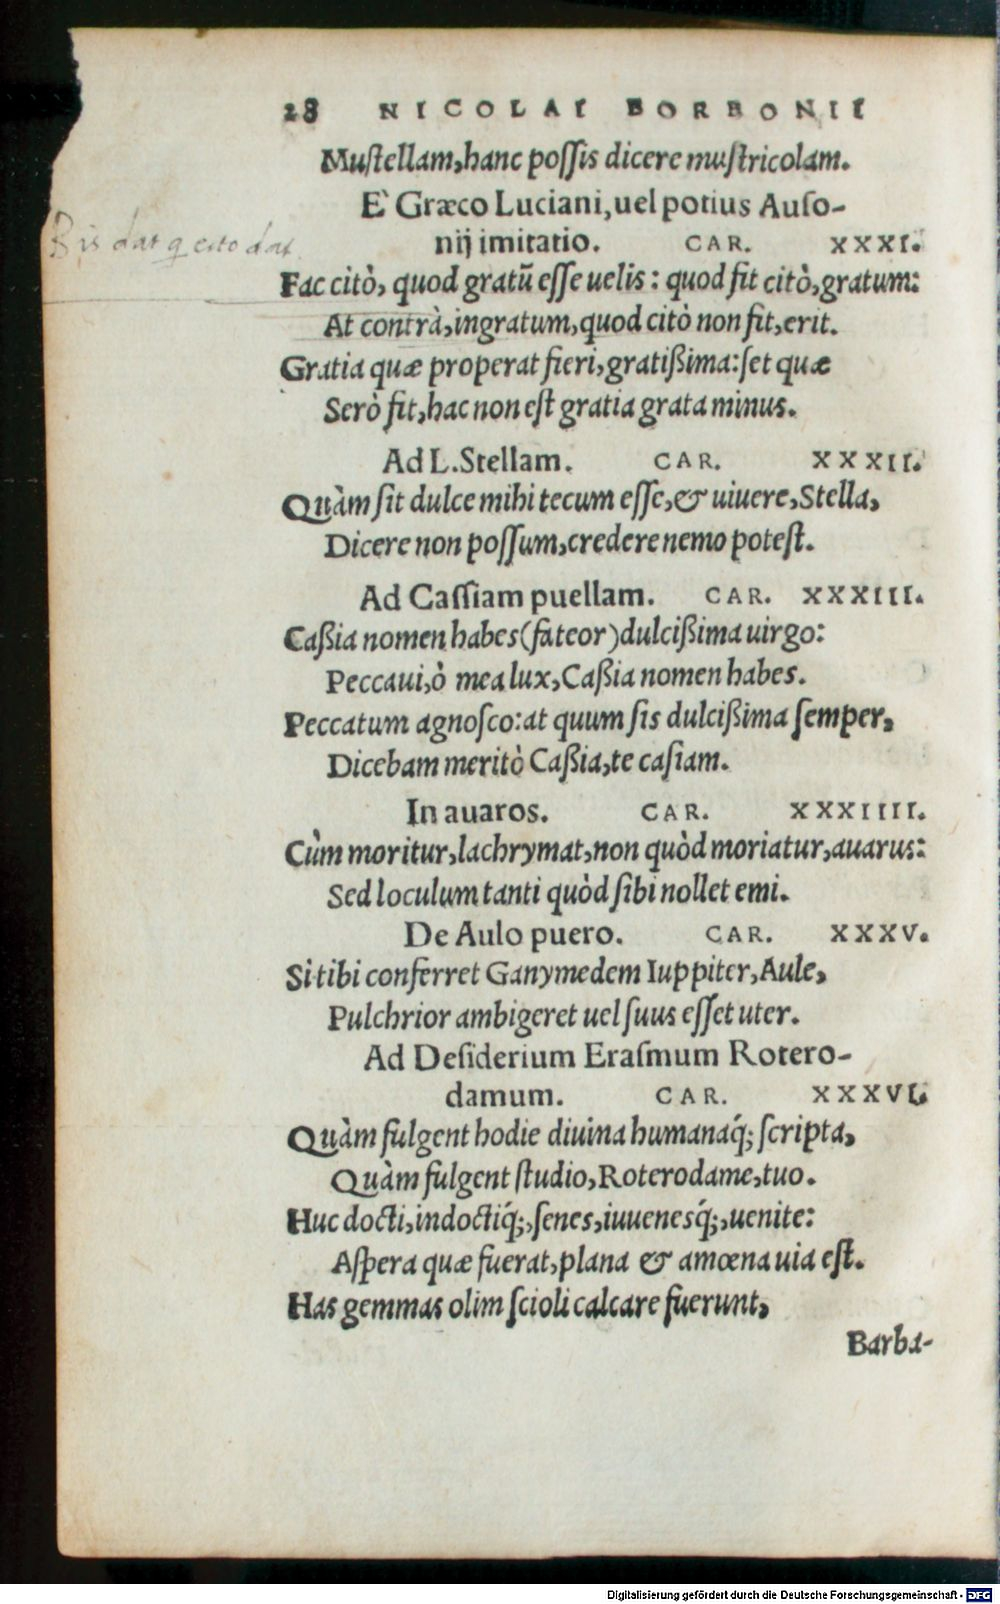 28 NICOLAI BORBONII
Muſtellam, hanc poſſis dicere muſtricolam.
E' Græco Luciani, uel potius Auſo-
nij imitatio. CAR. XXXI.
Bis dat q cito dat
Fac citò, quod gratū eſſe uelis: quod fit citò, gratum:
At contrà, ingratum, quod citò non fit, erit.
Gratia quæ properat fieri, gratißima: ſet quæ
Serò fit, hac non eſt gratia grata minus.
Ad L. Stellam. CAR. XXXII.
Quàm ſit dulce mihi tecum eſſe, & uiuere, Stella,
Dicere non poſſum, credere nemo poteſt.
Ad Caſſiam puellam. CAR. XXXIII.
Caßia nomen habes (fateor) dulcißima uirgo:
Peccaui, ò mea lux, Caßia nomen habes.
Peccatum agnoſco: at quum ſis dulcißima ſemper,
Dicebam meritò Caßia, te caſiam.
In auaros. CAR. XXXIIII.
Cùm moritur, lachrymat, non quòd moriatur, auarus:
Sed loculum tanti quòd ſibi nollet emi.
De Aulo puero. CAR. XXXV.
Si tibi conferret Ganymedem Iuppiter, Aule,
Pulchrior ambigeret uel ſuus eſſet uter.
Ad Deſiderium Eraſmum Rotero-
damum. CAR. XXXVI.
Quàm fulgent hodie diuina humanaq́; ſcripta,
Quàm fulgent ſtudio, Roterodame, tuo.
Huc docti, indoctiq́;, ſenes, iuuenesq́;, uenite:
Aſpera quæ fuerat, plana & amœna uia eſt.
Has gemmas olim ſcioli calcare fuerunt,
Barba-
Digitalisierung gefördert durch die Deutsche Forschungsgemeinschaft - DFG